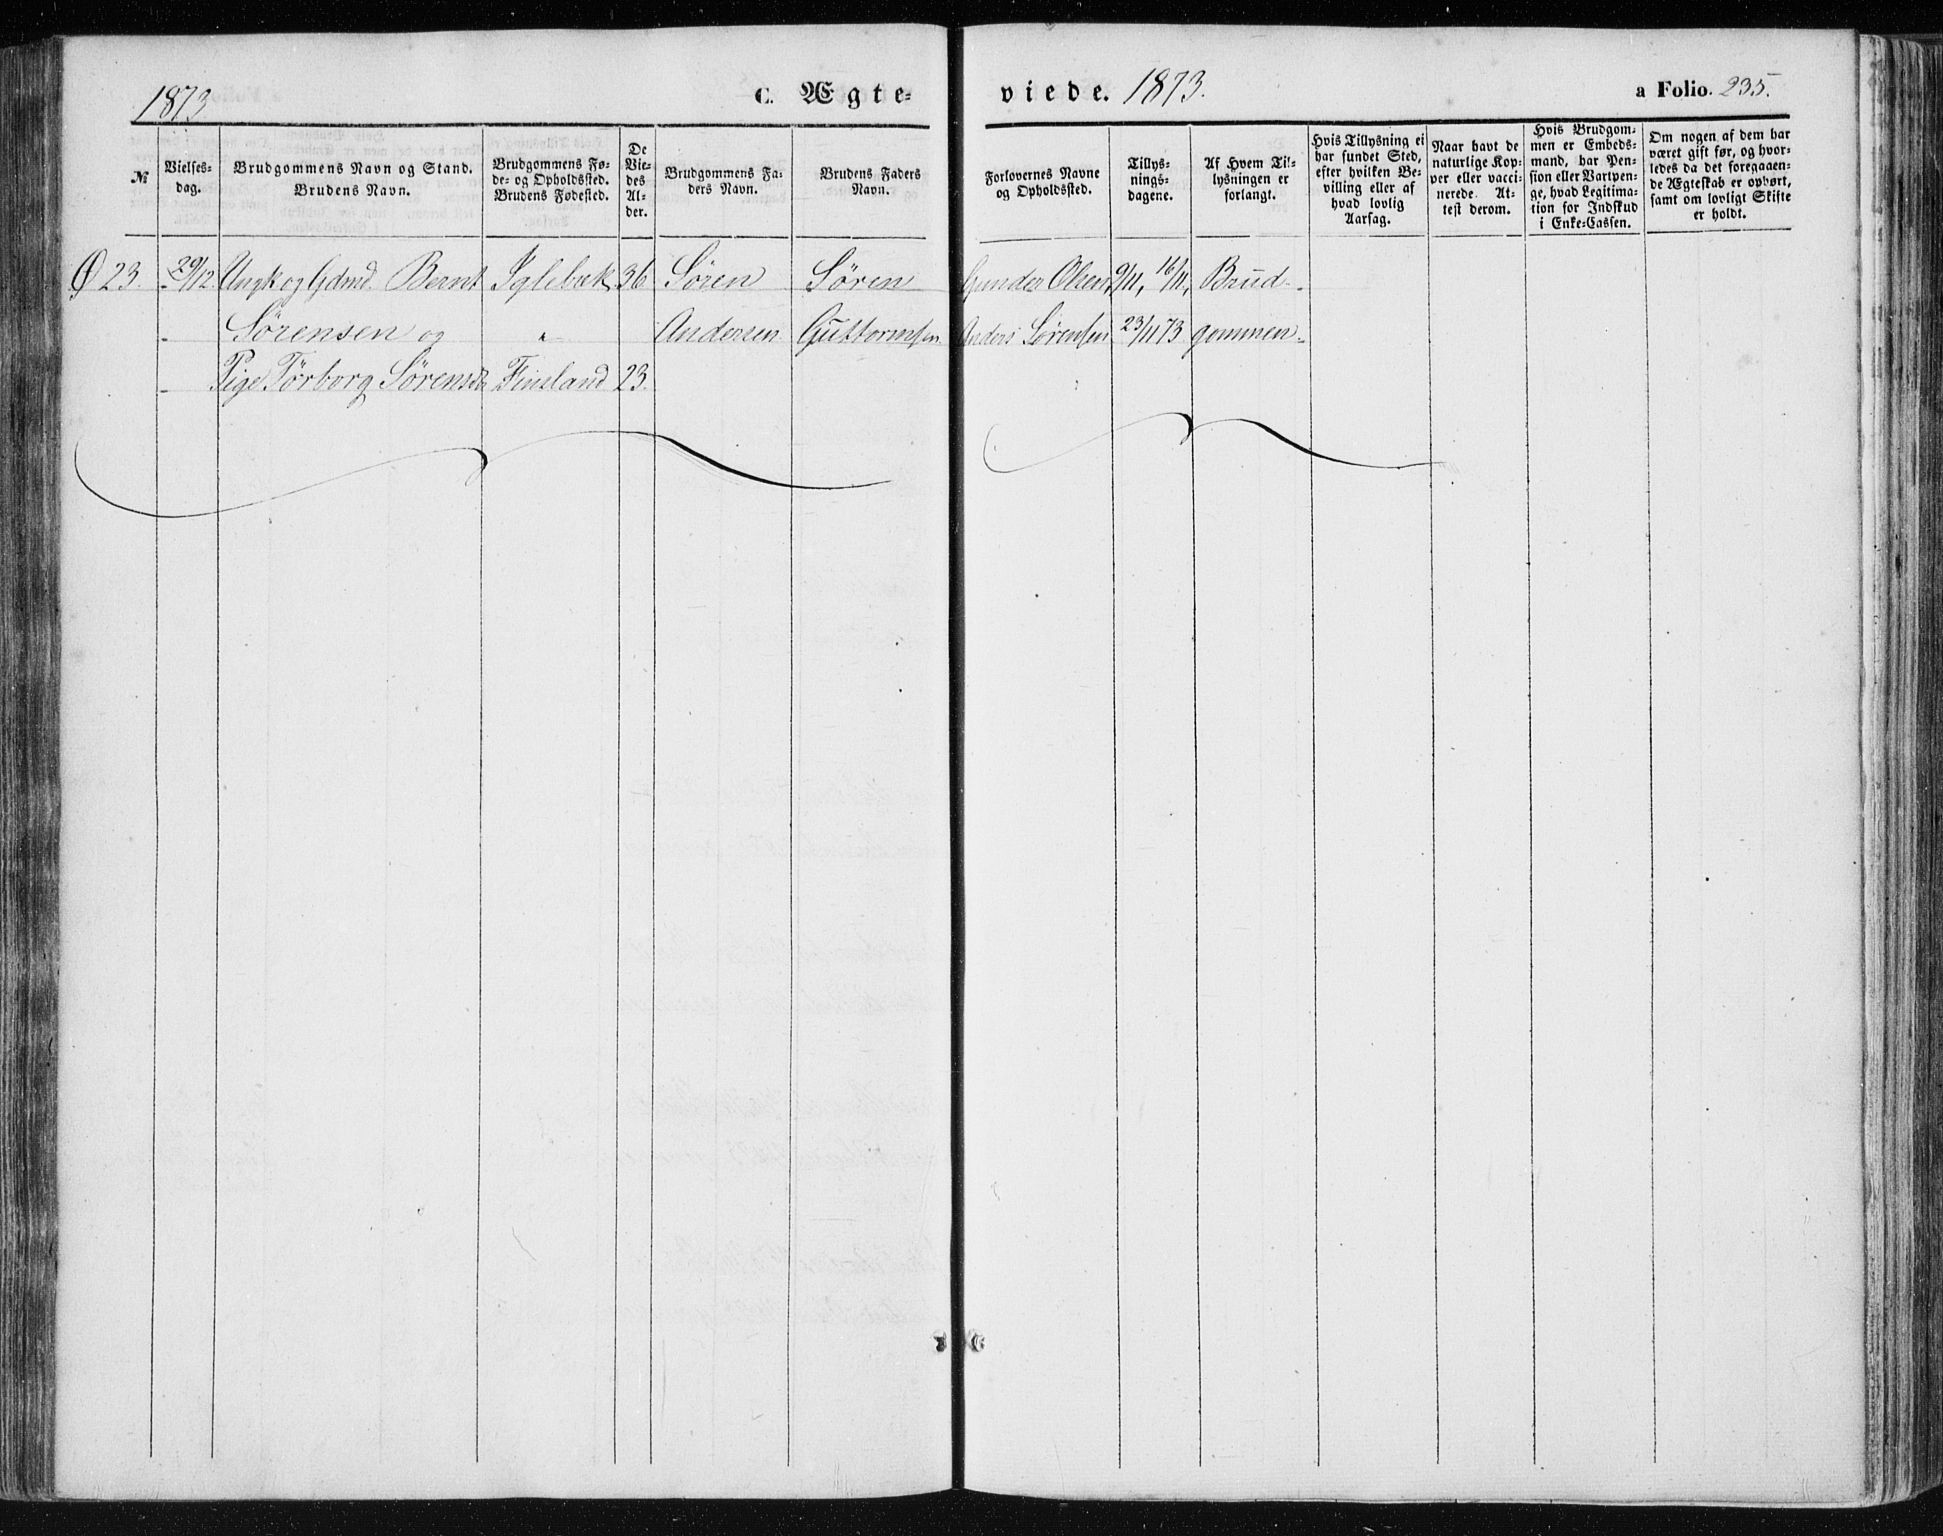 1873
C. Ægte-
viede. 1873.
a Folio. 235.
№
Vielses-
dag.
Brudgommens Navn og Stand.
Brudens Navn.
Brudgommens Fø-
de- og Opholdssted.
Brudens Fødested.
De
Vie-
des
Al-
der.
Brudgommens Fa-
ders Navn.
Brudens Faders
Navn.
Forlovernes Navne
og Opholdssted.
Tillys-
nings-
dagene.
Af Hvem Til-
lysningen er
forlangt.
Hvis Tillysning ei
har fundet Sted,
efter hvilken Be-
villing eller af
hvad lovlig
Aarsag.
Naar havt de
naturlige Kop-
per eller vacci-
nerede. At-
test derom.
Hvis Brudgom-
men er Embeds-
mand, har Pen-
sion eller Vartpen-
ge, hvad Legitima-
tion for Indskud
i Enke-Cassen.
Om nogen af dem har
været gift før, og hvor-
ledes da det foregaaen-
de Ægteskab er ophørt,
samt om lovligt Skifte
er holdt.
Ø 23. 29/12 Ungk og Gdmd. Bernt Iglebæk 36 Søren Søren Gunder Olsen 9/11, 16/11, Brud-
Sørensen og " Andersen Guttormsen Anders Sørensen 23/11 73 gommen.
Pige Tørborg Sørensdr Finsland 23.